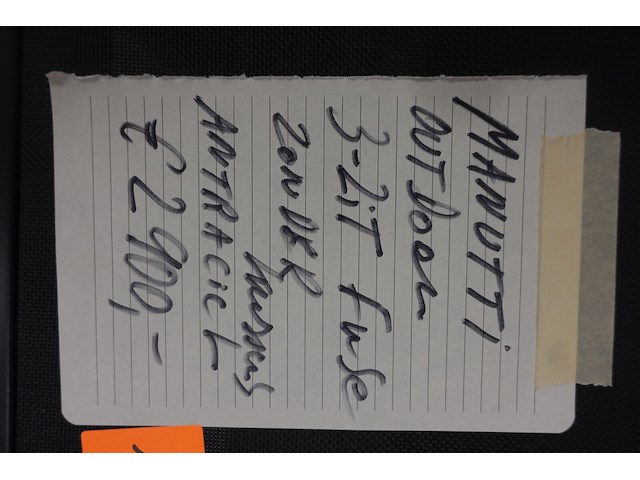 MANUTTI
OUTDOOR
3-ZiT FUSE
ZONDER
kussens
ANTRACiet
€ 2900,-